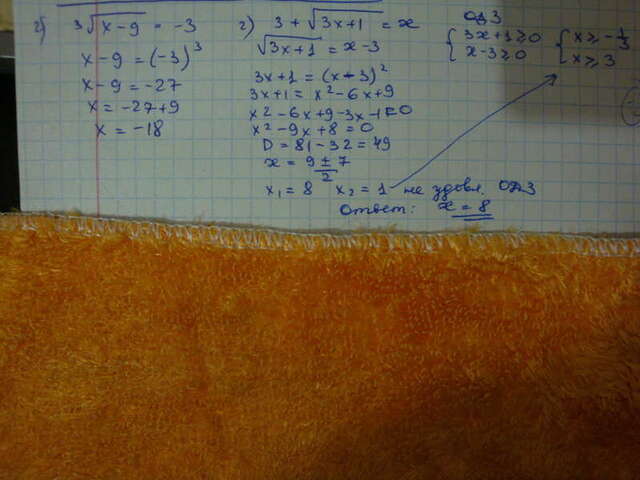 б) ³√x-9 = -3
x-9 = (-3)³
x-9 = -27
x = -27+9
x = -18
г) 3 + √3x+1 = x
√3x+1 = x-3
3x+1 = (x-3)²
3x+1 = x²-6x+9
x²-6x+9-3x-1=0
x²-9x+8=0
D = 81-32 = 49
x = 9±7/2
x₁ = 8 x₂ = 1 не удовл. ОДЗ
Ответ: x = 8
ОДЗ
{3x+1≥0 {x≥-1/3
{x-3≥0 {x≥3